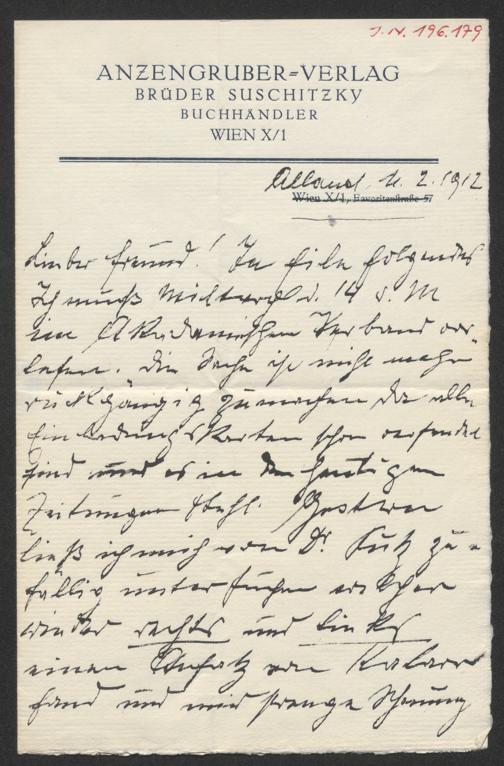 J.N. 196.179
ANZENGRUBER=VERLAG
BRÜDER SUSCHITZKY
BUCHHÄNDLER
WIEN X/1
Alland, 11. 2. 1912
Wien X/1, Favoritenstraße 57
Lieber Freund! In Eile folgendes
Ich muß Mittwoch d. 14 d. M
im Akademischen Verband vor-
lesen. Die Sache ist nicht mehr
rückgängig zu machen da alle
Einladungskarten schon versendet
sind und es in den heutigen
Zeitungen steht. Gestern
ließ ich mich von Dr. Kutz zu-
fällig untersuchen welcher
wieder rechts und links
einen Ansatz von Katarr
fand und mir strenge Schonung